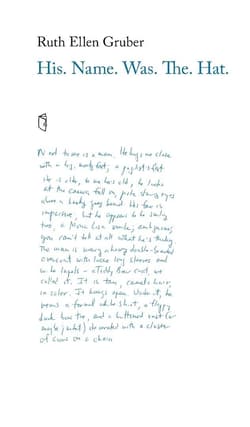 Ruth Ellen Gruber
His. Name. Was. The. Hat.
Next to me is a man. He hugs me close
with a big, meaty fist; a pugilist's fist.
He is older, to me he's old, he looks
at the camera full on, pale staring eyes
above a bushy gray beard. His face is
impassive, but he appears to be smiling
too, a Mona Lisa smile; ambiguous,
you can't tell at all what he is thinking.
The man is wearing a heavy double-breasted
overcoat with loose long sleeves and
wide lapels – a Teddy Bear coat, we
called it. It is tan, camel's hair,
in color. It hangs open. Under it, he
wears a formal white shirt, a floppy
dark bow tie, and a buttoned vest (or
maybe jacket) decorated with a cluster
of coins on a chain